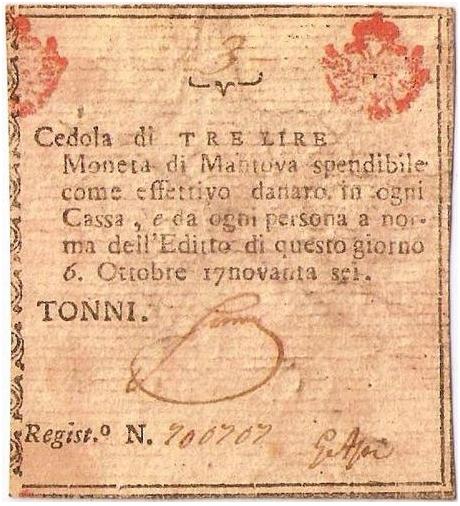 3
Cedola di TRE LIRE
Moneta di Mantova spendibile
come effettivo danaro in ogni
Cassa, e da ogni persona a nor-
ma dell'Editto di questo giorno
6. Ottobre 17novanta sei.
TONNI.
Regist.º N. 700707